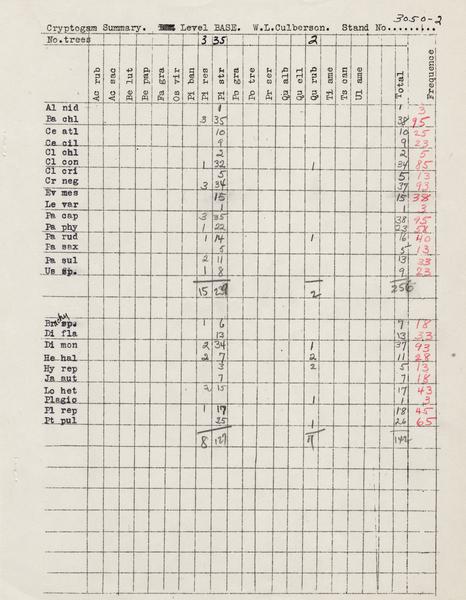 3050-2
Cryptogam Summary. Level BASE. W.L.Culberson. Stand No..........
No.trees 3 35 2
Ac rub Ac sac Be lut Be pap Fa gra Os vir Pi ban Pi res Pi str Po gra Po tre Pr ser Qu alb Qu ell Qu rub Ti ame Ts can Ul ame Total Frequence
Al nid 1 1 3
Ba chl 3 35 38 95
Ce atl 10 10 25
Ce cil 9 9 23
Cl chl 2 2 5
Cl con 1 32 1 34 85
Cl cri 5 5 13
Cr neg 3 34 37 93
Ev mes 15 15 38
Le var 1 1 3
Pa cap 3 35 38 95
Pa phy 1 22 23 58
Pa rud 1 14 1 16 40
Pa sax 5 5 13
Pa sul 2 11 13 33
Us sp. 1 8 9 23
15 239 2 256
sp. 1 6 7 18
Di fla 13 13 33
Di mon 2 34 1 37 93
He hal 2 7 2 11 28
Hy rep 3 2 5 13
Ja aut 7 7 18
Lo het 2 15 17 43
Plagio 1 1 3
Pl rep 1 17 18 45
Pt pul 25 1 26 65
8 127 7 142